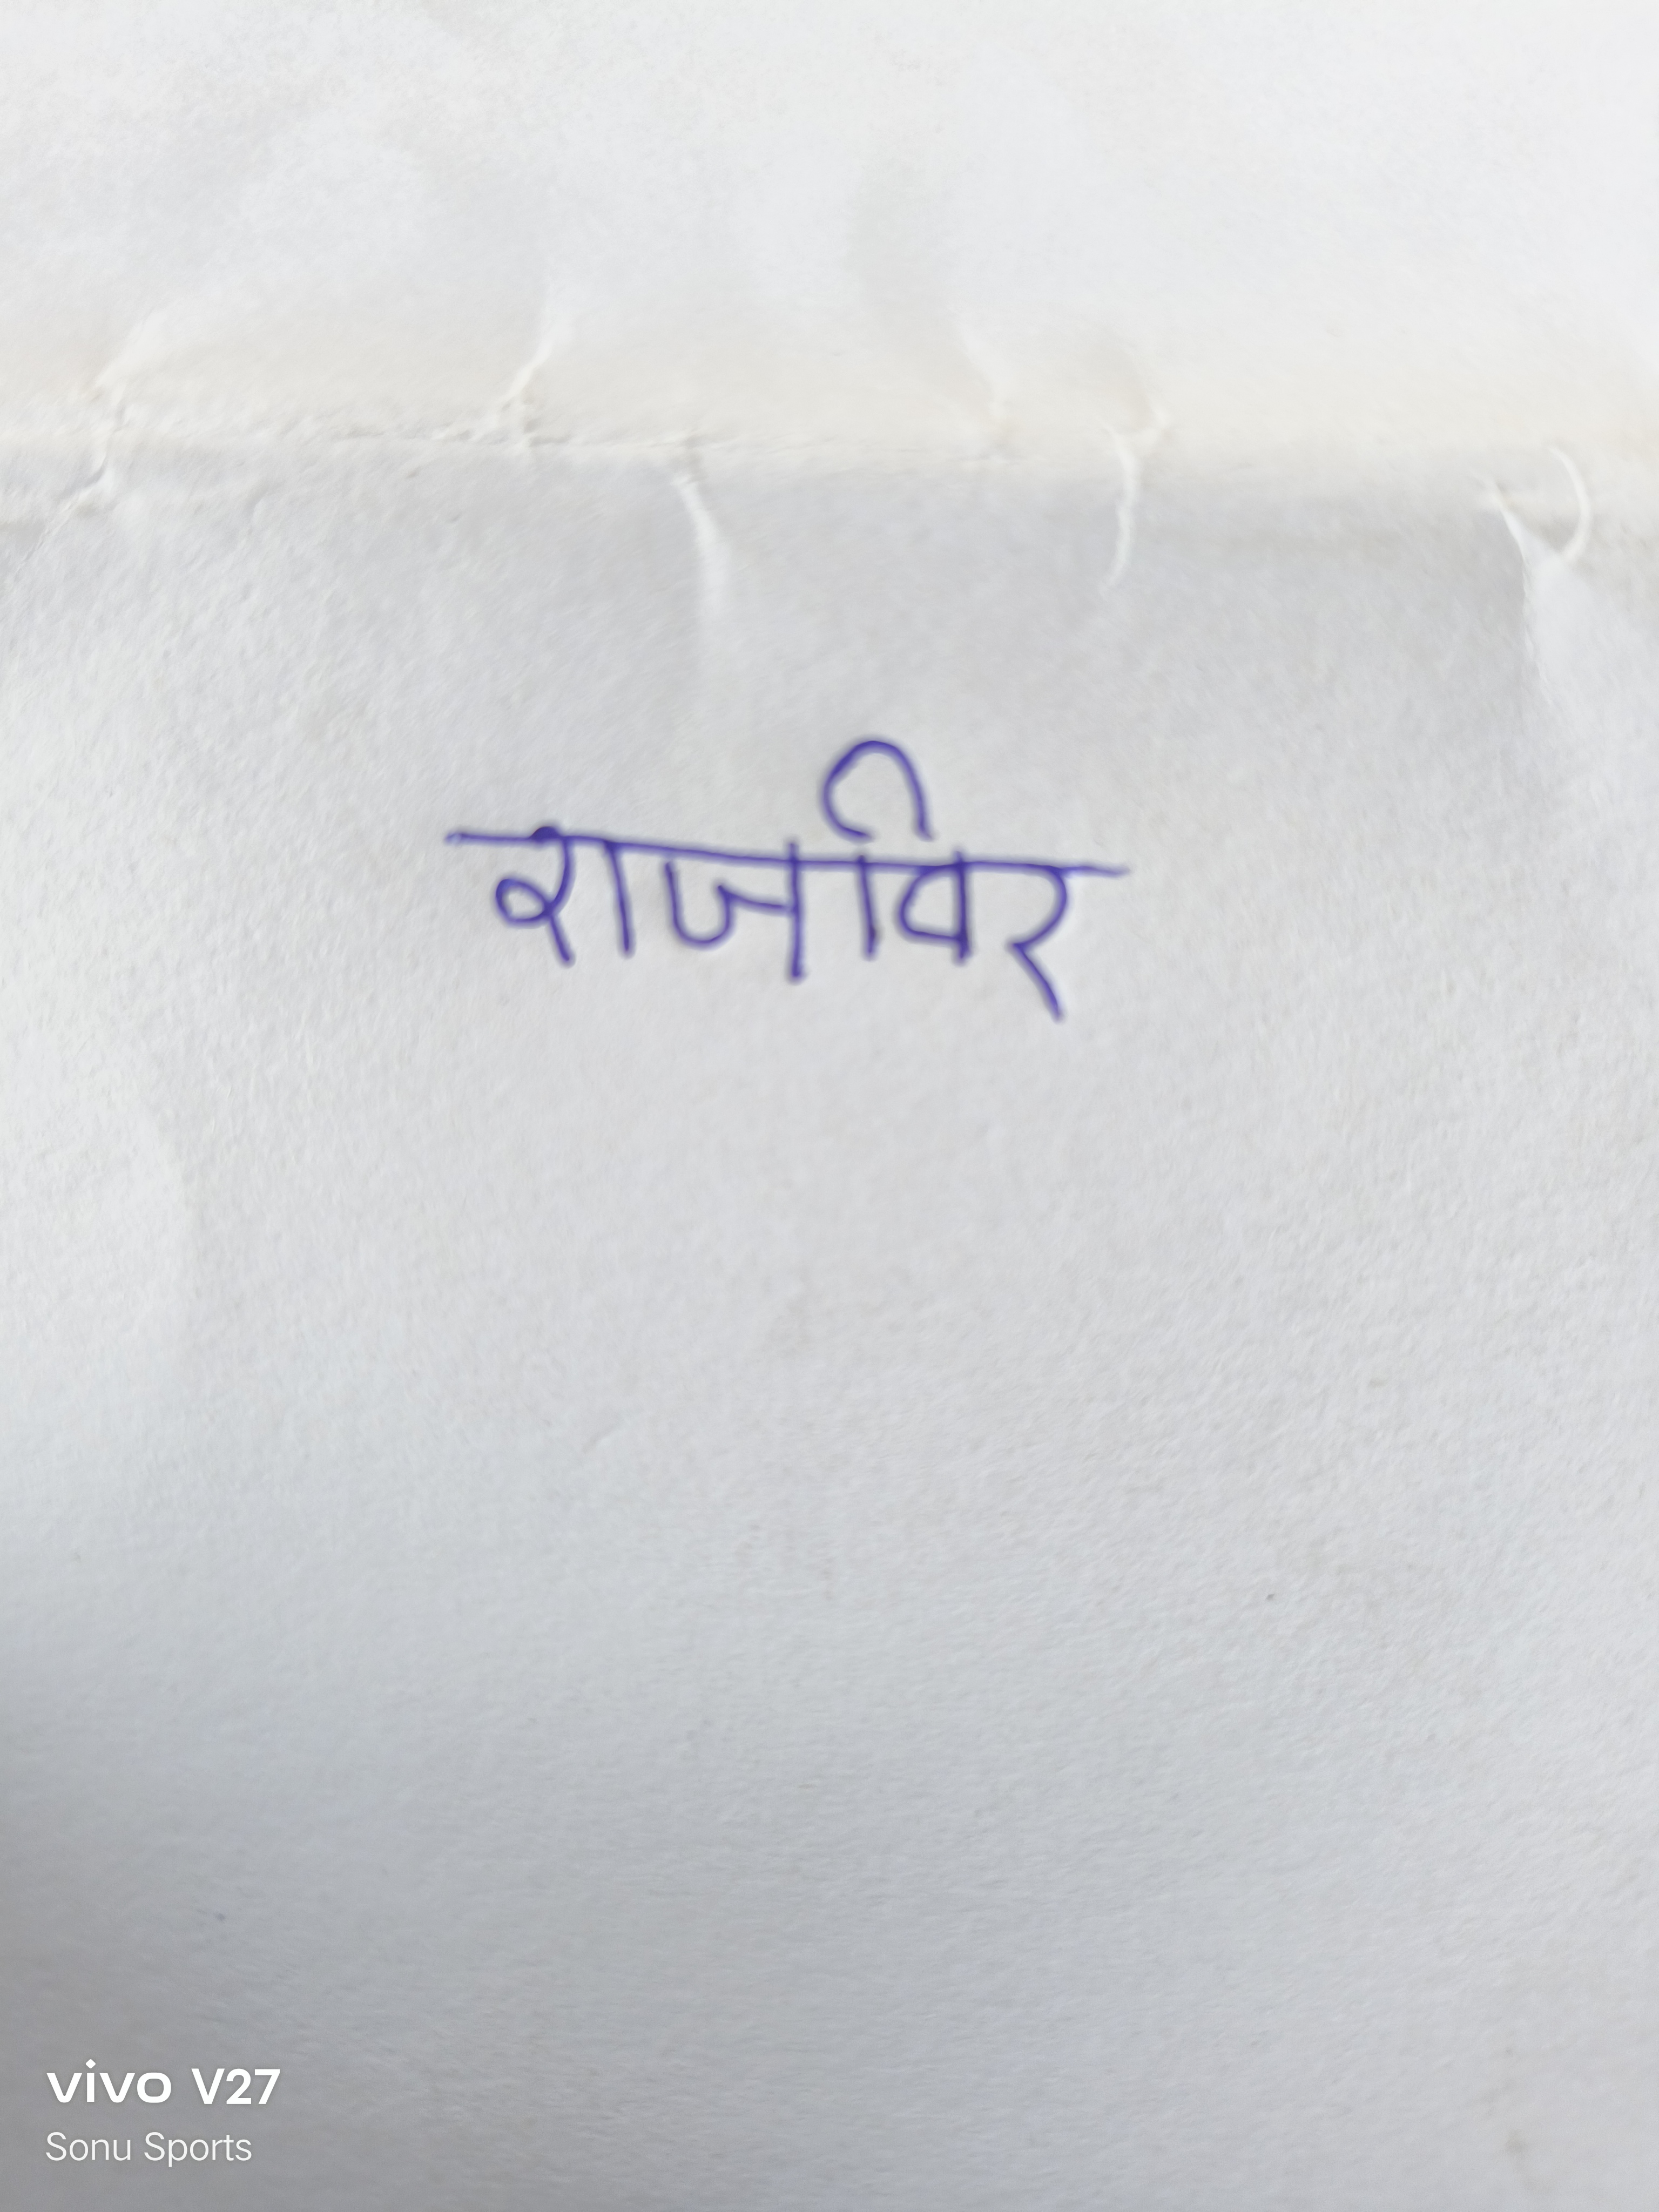 राजविर
vivo V27
Sonu Sports